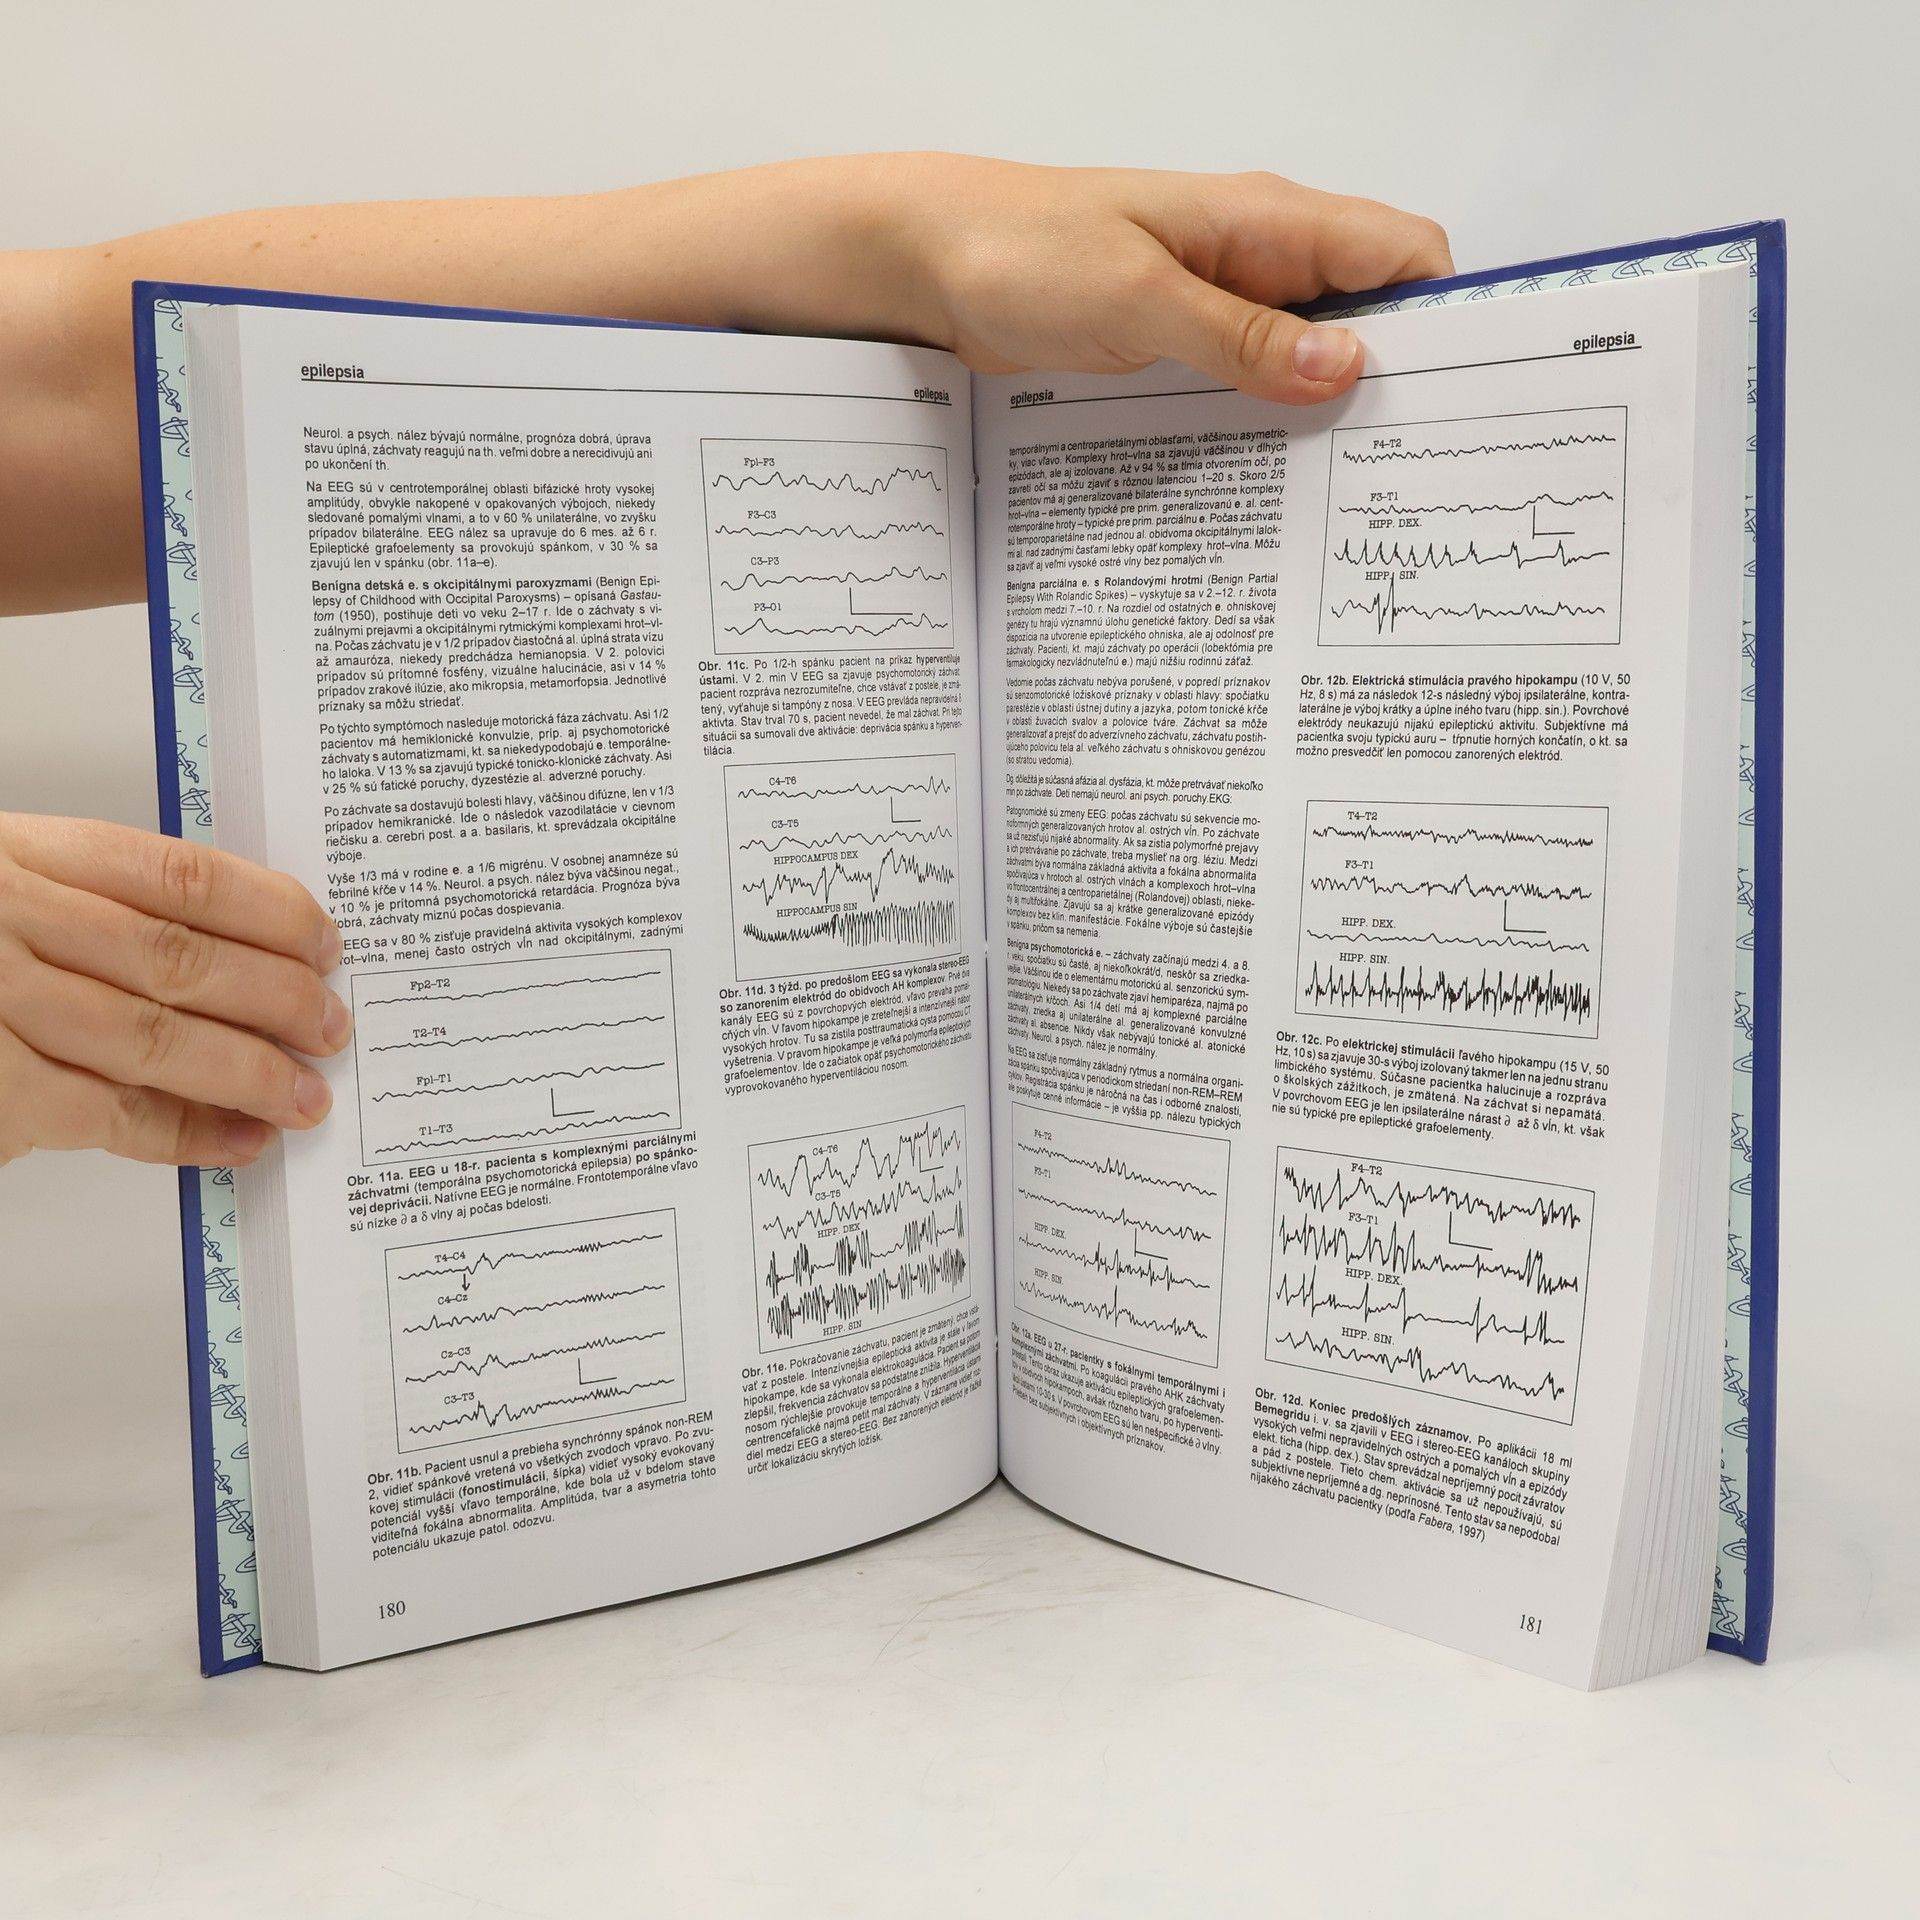 epilepsia
epilepsia
Neurol. a psych. nález bývajú normálne, prognóza dobrá, úprava
stavu úplná, záchvaty reagujú na th. veľmi dobre a nerecidivujú ani
po ukončení th.
Na EEG sú v centrotemporálnej oblasti bifázické hroty vysokej
amplitúdy, obvykle nakopené v opakovaných výbojoch, niekedy
sledované pomalými vlnami, a to v 60 % unilaterálne, vo zvyšku
prípadov bilaterálne. EEG nález sa upravuje do 6 mes. až 6 r.
Epileptické grafoelementy sa provokujú spánkom, v 30 % sa
zjavujú len v spánku (obr. 11a–e).
Benígna detská e. s okcipitálnymi paroxyzmami (Benign Epi-
lepsy of Childhood with Occipital Paroxysms) – opísaná Gastau-
tom (1950), postihuje deti vo veku 2–17 r. Ide o záchvaty s vi-
zuálnymi prejavmi a okcipitálnymi rytmickými komplexami hrot–vl-
na. Počas záchvatu je v 1/2 prípadov čiastočná al. úplná strata vízu
až amauróza, niekedy predchádza hemianopsia. V 2. polovici
prípadov sú prítomné fosfény, vizuálne halucinácie, asi v 14 %
prípadov zrakové ilúzie, ako mikropsia, metamorfopsia. Jednotlivé
príznaky sa môžu striedať.
Po týchto symptómoch nasleduje motorická fáza záchvatu. Asi 1/2
pacientov má hemiklonické konvulzie, príp. aj psychomotorické
záchvaty s automatizmami, kt. sa niekedypodobajú e. temporálne-
ho laloka. V 13 % sa zjavujú typické tonicko-klonické záchvaty. Asi
v 25 % sú fatické poruchy, dyzestézie al. adverzné poruchy.
Po záchvate sa dostavujú bolesti hlavy, väčšinou difúzne, len v 1/3
prípadov hemikranické. Ide o následok vazodilatácie v cievnom
riečisku a. cerebri post. a a. basilaris, kt. sprevádzala okcipitálne
výboje.
Vyše 1/3 má v rodine e. a 1/6 migrénu. V osobnej anamnéze sú
febrilné kŕče v 14 %. Neurol. a psych. nález býva väčšinou negat.,
v 10 % je prítomná psychomotorická retardácia. Prognóza býva
dobrá, záchvaty miznú počas dospievania.
EEG sa v 80 % zisťuje pravidelná aktivita vysokých komplexov
rot–vlna, menej často ostrých vĺn nad okcipitálnymi, zadnými
Fp2–T2
T2–T4
Fpl–T1
T1–T3
Obr. 11a. EEG u 18-r. pacienta s komplexnými parciálnymi
záchvatmi (temporálna psychomotorická epilepsia) po spánko-
vej deprivácii. Natívne EEG je normálne. Frontotemporálne vľavo
sú nízke ∂ a δ vlny aj počas bdelosti.
T4–C4
C4–Cz
Cz–C3
C3–T3
Obr. 11b. Pacient usnul a prebieha synchrónny spánok non-REM
2, vidieť spánkové vretená vo všetkých zvodoch vpravo. Po zvu-
kovej stimulácii (fonostimulácii, šípka) vidieť vysoký evokovaný
potenciál vyšší vľavo temporálne, kde bola už v bdelom stave
viditeľná fokálna abnormalita. Amplitúda, tvar a asymetria tohto
potenciálu ukazuje patol. odozvu.
180
Fpl–F3
F3–C3
C3–P3
P3–O1
Obr. 11c. Po 1/2-h spánku pacient na príkaz hyperventiluje
ústami. V 2. min V EEG sa zjavuje psychomotorický záchvat,
pacient rozpráva nezrozumiteľne, chce vstávať z postele, je zmä-
tený, vyťahuje si tampóny z nosa. V EEG prevláda nepravidelná δ
aktivta. Stav trval 70 s, pacient nevedel, že mal záchvat. Pri tejto
situácii sa sumovali dve aktivácie: deprivácia spánku a hyperven-
tilácia.
C4–T6
C3–T5
HIPPOCAMPUS DEX
HIPPOCAMPUS SIN
Obr. 11d. 3 týžd. po predošlom EEG sa vykonala stereo-EEG
so zanorením elektród do obidvoch AH komplexov. Prvé dva
kanály EEG sú z povrchopvých elektród, vľavo prevaha pomal-
cných vĺn. V ľavom hipokampe je zreteľnejší a intenzívnejší nábor
vysokých hrotov. Tu sa zistila posttraumatická cysta pomocou CT
vyšetrenia. V pravom hipokampe je veľká polymorfia epileptických
grafoelementov. Ide o začiatok opäť psychomotorického záchvatu
vyprovokovaného hyperventiláciou nosom.
C4–T6
C3–T5
HIPP. DEX
HIPP. SIN
Obr. 11e. Pokračovanie záchvatu, pacient je zmätený, chce vstá-
vať z postele. Intenzívnejšia epileptická aktivita je stále v ľavom
hipokampe, kde sa vykonala elektrokoagulácia. Pacient sa potom
zlepšil, frekvencia záchvatov sa podstatne znížila. Hyperventilácia
nosom rýchlejšie provokuje temporálne a hyperventilácia ústami
centrencefalické najmä petit mal záchvaty. V zázname vidieť roz-
diel medzi EEG a stereo-EEG. Bez zanorených elektród je ťažké
určiť lokalizáciu skrytých ložísk.
epilepsia
epilepsia
temporálnymi a centroparietálnymi oblasťami, väčšinou asymetric-
ky, viac vľavo. Komplexy hrot–vlna sa zjavujú väčšinou v dlhých
epizódach, ale aj izolovane. Až v 94 % sa tlmia otvorením očí, po
zavretí očí sa môžu zjaviť s rôznou latenciou 1–20 s. Skoro 2/5
pacientov má aj generalizované bilaterálne synchrónne komplexy
hrot–vlna – elementy typické pre prim. generalizovanú e. al. cent-
rotemporálne hroty – typické pre prim. parciálnu e. Počas záchvatu
sú temporoparietálne nad jednou al. obidvoma okcipitálnymi lalok-
mi al. nad zadnými časťami lebky opäť komplexy hrot–vlna. Môžu
sa zjaviť aj veľmi vysoké ostré vlny bez pomalých vĺn.
Benígna parciálna e. s Rolandovými hrotmi (Benign Partial
Epilepsy With Rolandic Spikes) – vyskytuje sa v 2.–12. r. života
s vrcholom medzi 7.–10. r. Na rozdiel od ostatných e. ohniskovej
genézy tu hrajú významnú úlohu genetické faktory. Dedí sa však
dispozícia na utvorenie epileptického ohniska, ale aj odolnosť pre
záchvaty. Pacienti, kt. majú záchvaty po operácii (lobektómia pre
farmakologicky nezvládnuteľnú e.) majú nižšiu rodinnú záťaž.
Vedomie počas záchvatu nebýva porušené, v popredí príznakov
sú senzomotorické ložiskové príznaky v oblasti hlavy: spočiatku
parestézie v oblasti ústnej dutiny a jazyka, potom tonické kŕče
v oblasti žuvacích svalov a polovice tváre. Záchvat sa môže
generalizovať a prejsť do adverzívneho záchvatu, záchvatu postih-
ujúceho polovicu tela al. veľkého záchvatu s ohniskovou genézou
(so stratou vedomia).
Dg. dôležitá je súčasná afázia al. dysfázia, kt. môže pretrvávať niekoľko
min po záchvate. Deti nemajú neurol. ani psych. poruchy.EKG:
Patognomické sú zmeny EEG: počas záchvatu sú sekvencie mo-
noformných generalizovaných hrotov al. ostrých vĺn. Po záchvate
sa už nezisťujú nijaké abnormality. Ak sa zistia polymorfné prejavy
a ich pretrvávanie po záchvate, treba myslieť na org. léziu. Medzi
záchvatmi býva normálna základná aktivita a fokálna abnormalita
spočívajúca v hrotoch al. ostrých vlnách a komplexoch hrot–vlna
vo frontocentrálnej a centroparietálnej (Rolandovej) oblasti, nieke-
dy aj multifokálne. Zjavujú sa aj krátke generalizované epizódy
komplexov bez klin. manifestácie. Fokálne výboje sú častejšie
v spánku, pričom sa nemenia.
Benígna psychomotorická e. – záchvaty začínajú medzi 4. a 8.
r. veku, spočiatku sú časté, aj niekoľkokrát/d, neskôr sa zriedka-
vejšie. Väčšinou ide o elementárnu motorickú al. senzorickú sym-
ptomatológiu. Niekedy sa po záchvate zjaví hemiparéza, najmä po
unilaterálnych kŕčoch. Asi 1/4 detí má aj komplexné parciálne
záchvaty, zriedka aj unilaterálne al. generalizované konvulzné
záchvaty al. absencie. Nikdy však nebývajú tonické al. atonické
záchvaty. Neurol. a psych. nález je normálny.
Na EEG sa zisťuje normálny základný rytmus a normálna organi-
zácia spánku spočívajúca v periodickom striedaní non-REM–REM
cyklov. Registrácia spánku je náročná na čas i odborné znalosti,
ale poskytuje cenné informácie – je vyššia pp. nálezu typických
F4–T2
F3–T1
HIPP. DEX.
HIPP. SIN.
Obr. 12a. EEG u 27-r. pacientky s fokálnymi temporálnymi i
komplexnými záchvatmi. Po koagulácii pravého AHK záchvaty
prestali. Tento obraz ukazuje aktiváciu epileptických grafoelemen-
tov v obidvoch hipokampoch, avšak rôzneho tvaru, po hyperventi-
lácii ústami 10-30 s. V povrchovom EEG sú len nešpecifické ∂ vlny.
Priebeh bez subjektívnych i objektívnych príznakov.
F4–T2
F3–T1
HIPP. DEX.
HIPP. SIN.
Obr. 12b. Elektrická stimulácia pravého hipokampu (10 V, 50
Hz, 8 s) má za následok 12-s následný výboj ipsilaterálne, kontra-
laterálne je výboj krátky a úplne iného tvaru (hipp. sin.). Povrchové
elektródy neukazujú nijakú epileptickú aktivitu. Subjektívne má
pacientka svoju typickú auru – tŕpnutie horných končatín, o kt. sa
možno presvedčiť len pomocou zanorených elektród.
T4–T2
F3–T1
HIPP. DEX.
HIPP. SIN.
Obr. 12c. Po elektrickej stimulácii ľavého hipokampu (15 V, 50
Hz, 10 s) sa zjavuje 30-s výboj izolovaný takmer len na jednu stranu
limbického systému. Súčasne pacientka halucinuje a rozpráva
o školských zážitkoch, je zmätená. Na záchvat si nepamätá.
V povrchovom EEG je len ipsilaterálne nárast ∂ až δ vĺn, kt. však
nie sú typické pre epileptické grafoelementy.
F4–T2
F3–T1
HIPP. DEX.
HIPP. SIN.
Obr. 12d. Koniec predošlých záznamov. Po aplikácii 18 ml
Bemegridu i. v. sa zjavili v EEG i stereo-EEG kanáloch skupiny
vysokých veľmi nepravidelných ostrých a pomalých vĺn a epizódy
elekt. ticha (hipp. dex.). Stav sprevádzal nepríjemný pocit závratov
a pád z postele. Tieto chem. aktivácie sa už nepoužívajú, sú
subjektívne nepríjemné a dg. neprínosné. Tento stav sa nepodobal
nijakého záchvatu pacientky (podľa Fabera, 1997)
181